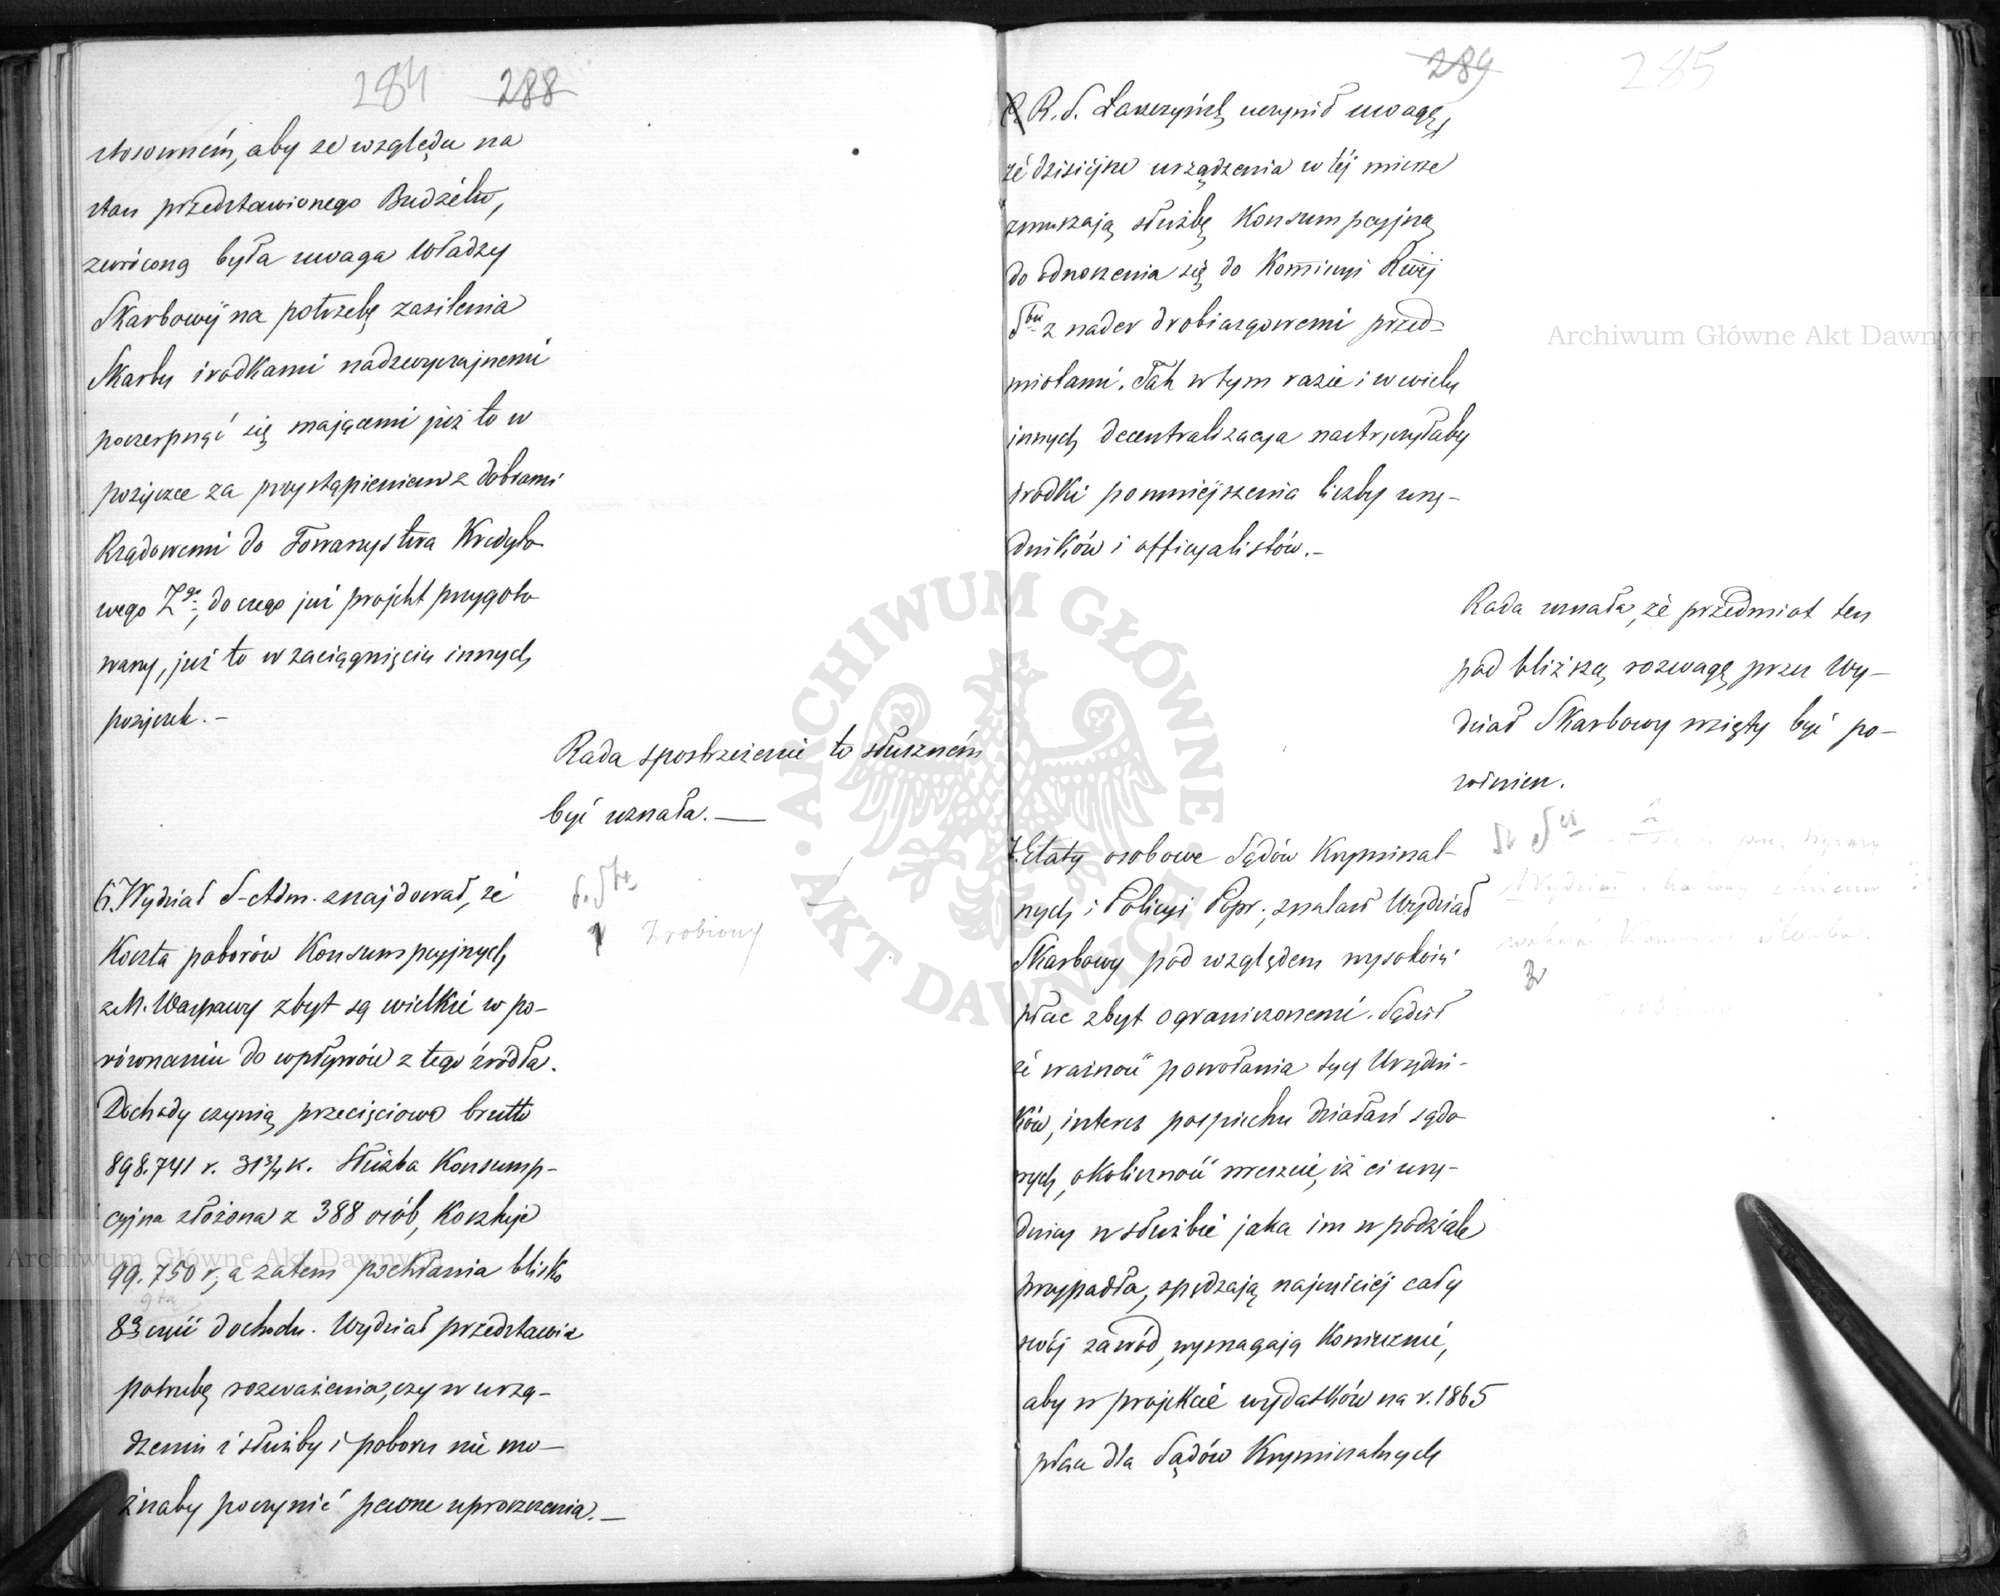 284 288
stosownem, aby ze względu na
stan przedstawionego Budżetu,
zwróconą była uwaga Władzy
Skarbowéj na potrzebę zasilenia
Skarbu środkami nadzwyczajnemi
poczerpnąć się mającemi już to w
pożyczce za przystąpieniem z dobrami
Rządowemi do Towarzystwa Kredyto
wego Zgo, do czego już projekt przygoto
wany, już to w zaciągnięciu innych
pożyczek. –
Rada spostrzeżenie to słuszném
być uznała. —
6. Wydział S-Adm. znajdował, że
Koszta poborów Konsumpcyjnych
z M. Warszawy zbyt są wielkie w po-
równaniu do wpływów z tego źródła.
Dochody czynią przecięciowo brutto
898.741 r. 31¾ k. Służba Konsump-
cyjna złożona z 388 osób, Kosztuje
99.750 r., a zatem pochłania blisko
części dochodu. Wydział przedstawia
potrzebę rozważenia, czy w urzą-
dzeniu służby i poboru nie mo-
żnaby poczynić pewne uproszczenia. —
Zrobiony
289 285
R. S. Łaszczyński uczynił uwagę,
że dzisiejsze urządzenia w téj mierze
zmuszają służbę Konsumpcyjną
do odnoszenia się do Kommissyi Rwéj
Sbu z nader drobiazgowemi przed-
miotami. Tak w tym razie i w wielu
innych decentralizacya nastręczyłaby
środki pomniejszenia liczby urzę-
dników i officyalistów. –
Rada uznała, że przedmiot ten
pod bliższą rozwagę przez Wy-
dział Skarbowy wzięty być po-
winien.
7. Etaty osobowe Sądów Kryminal-
nych i Policyi Popr., znalazł Wydział
Skarbowy pod względem wysokości
płac zbyt ograniczonemi. Sądził
że ważność powołania tych Urzędni-
ków, interes pospiechu działań sądo
wych, okoliczność wreszcie, iż ci urzę-
dnicy w służbie jaka im w podziale
przypadła, spędzają najczęściéj cały
swój zawód, wymagają Koniecznie,
aby w projekcie wydatków na r. 1865
płace dla Sądów Kryminalnych
Archiwum Główne Akt Dawnych
Archiwum Główne Akt Dawnych
ARCHIWUM GŁÓWNE AKT DAWNYCH